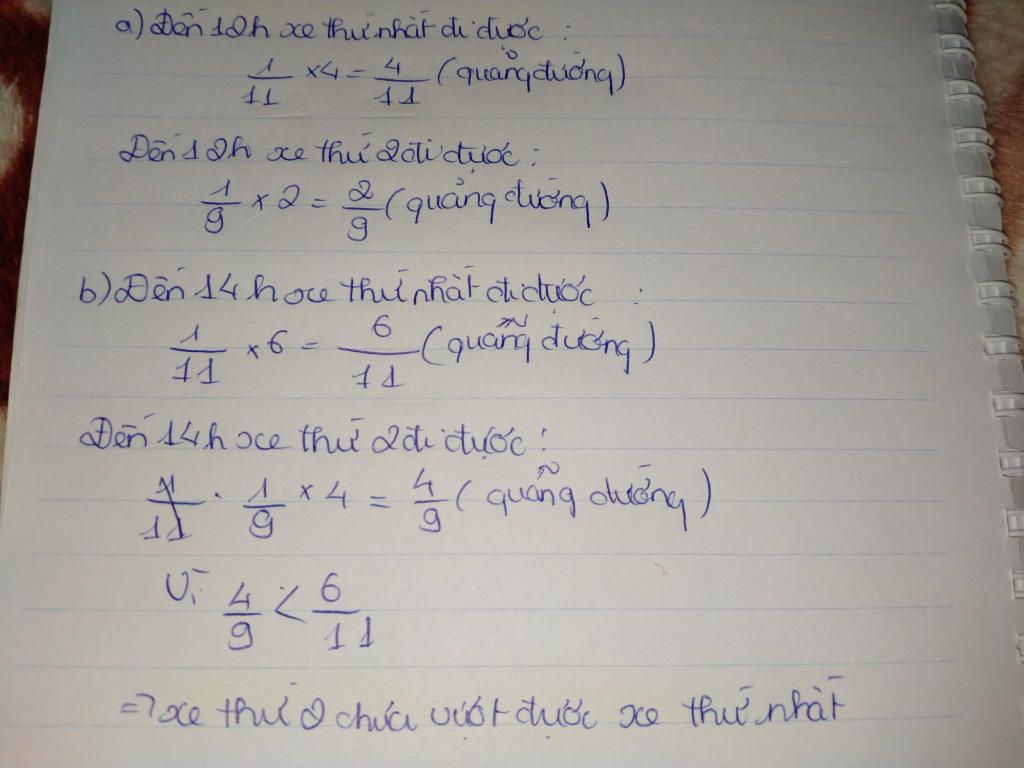 a) Đến 12h xe thứ nhất đi được :
1/11 × 4 = 4/11 (quảng đường)
Đến 12h xe thứ 2 đi được :
1/9 × 2 = 2/9 (quảng đường)
b) Đến 14h xe thứ nhất đi được :
1/11 × 6 = 6/11 (quẫng đường)
Đến 14h xe thứ 2 đi được :
1/9 × 4 = 4/9 (quẫng đường)
Vì 4/9 < 6/11
=> xe thứ 2 chưa vượt được xe thứ nhất